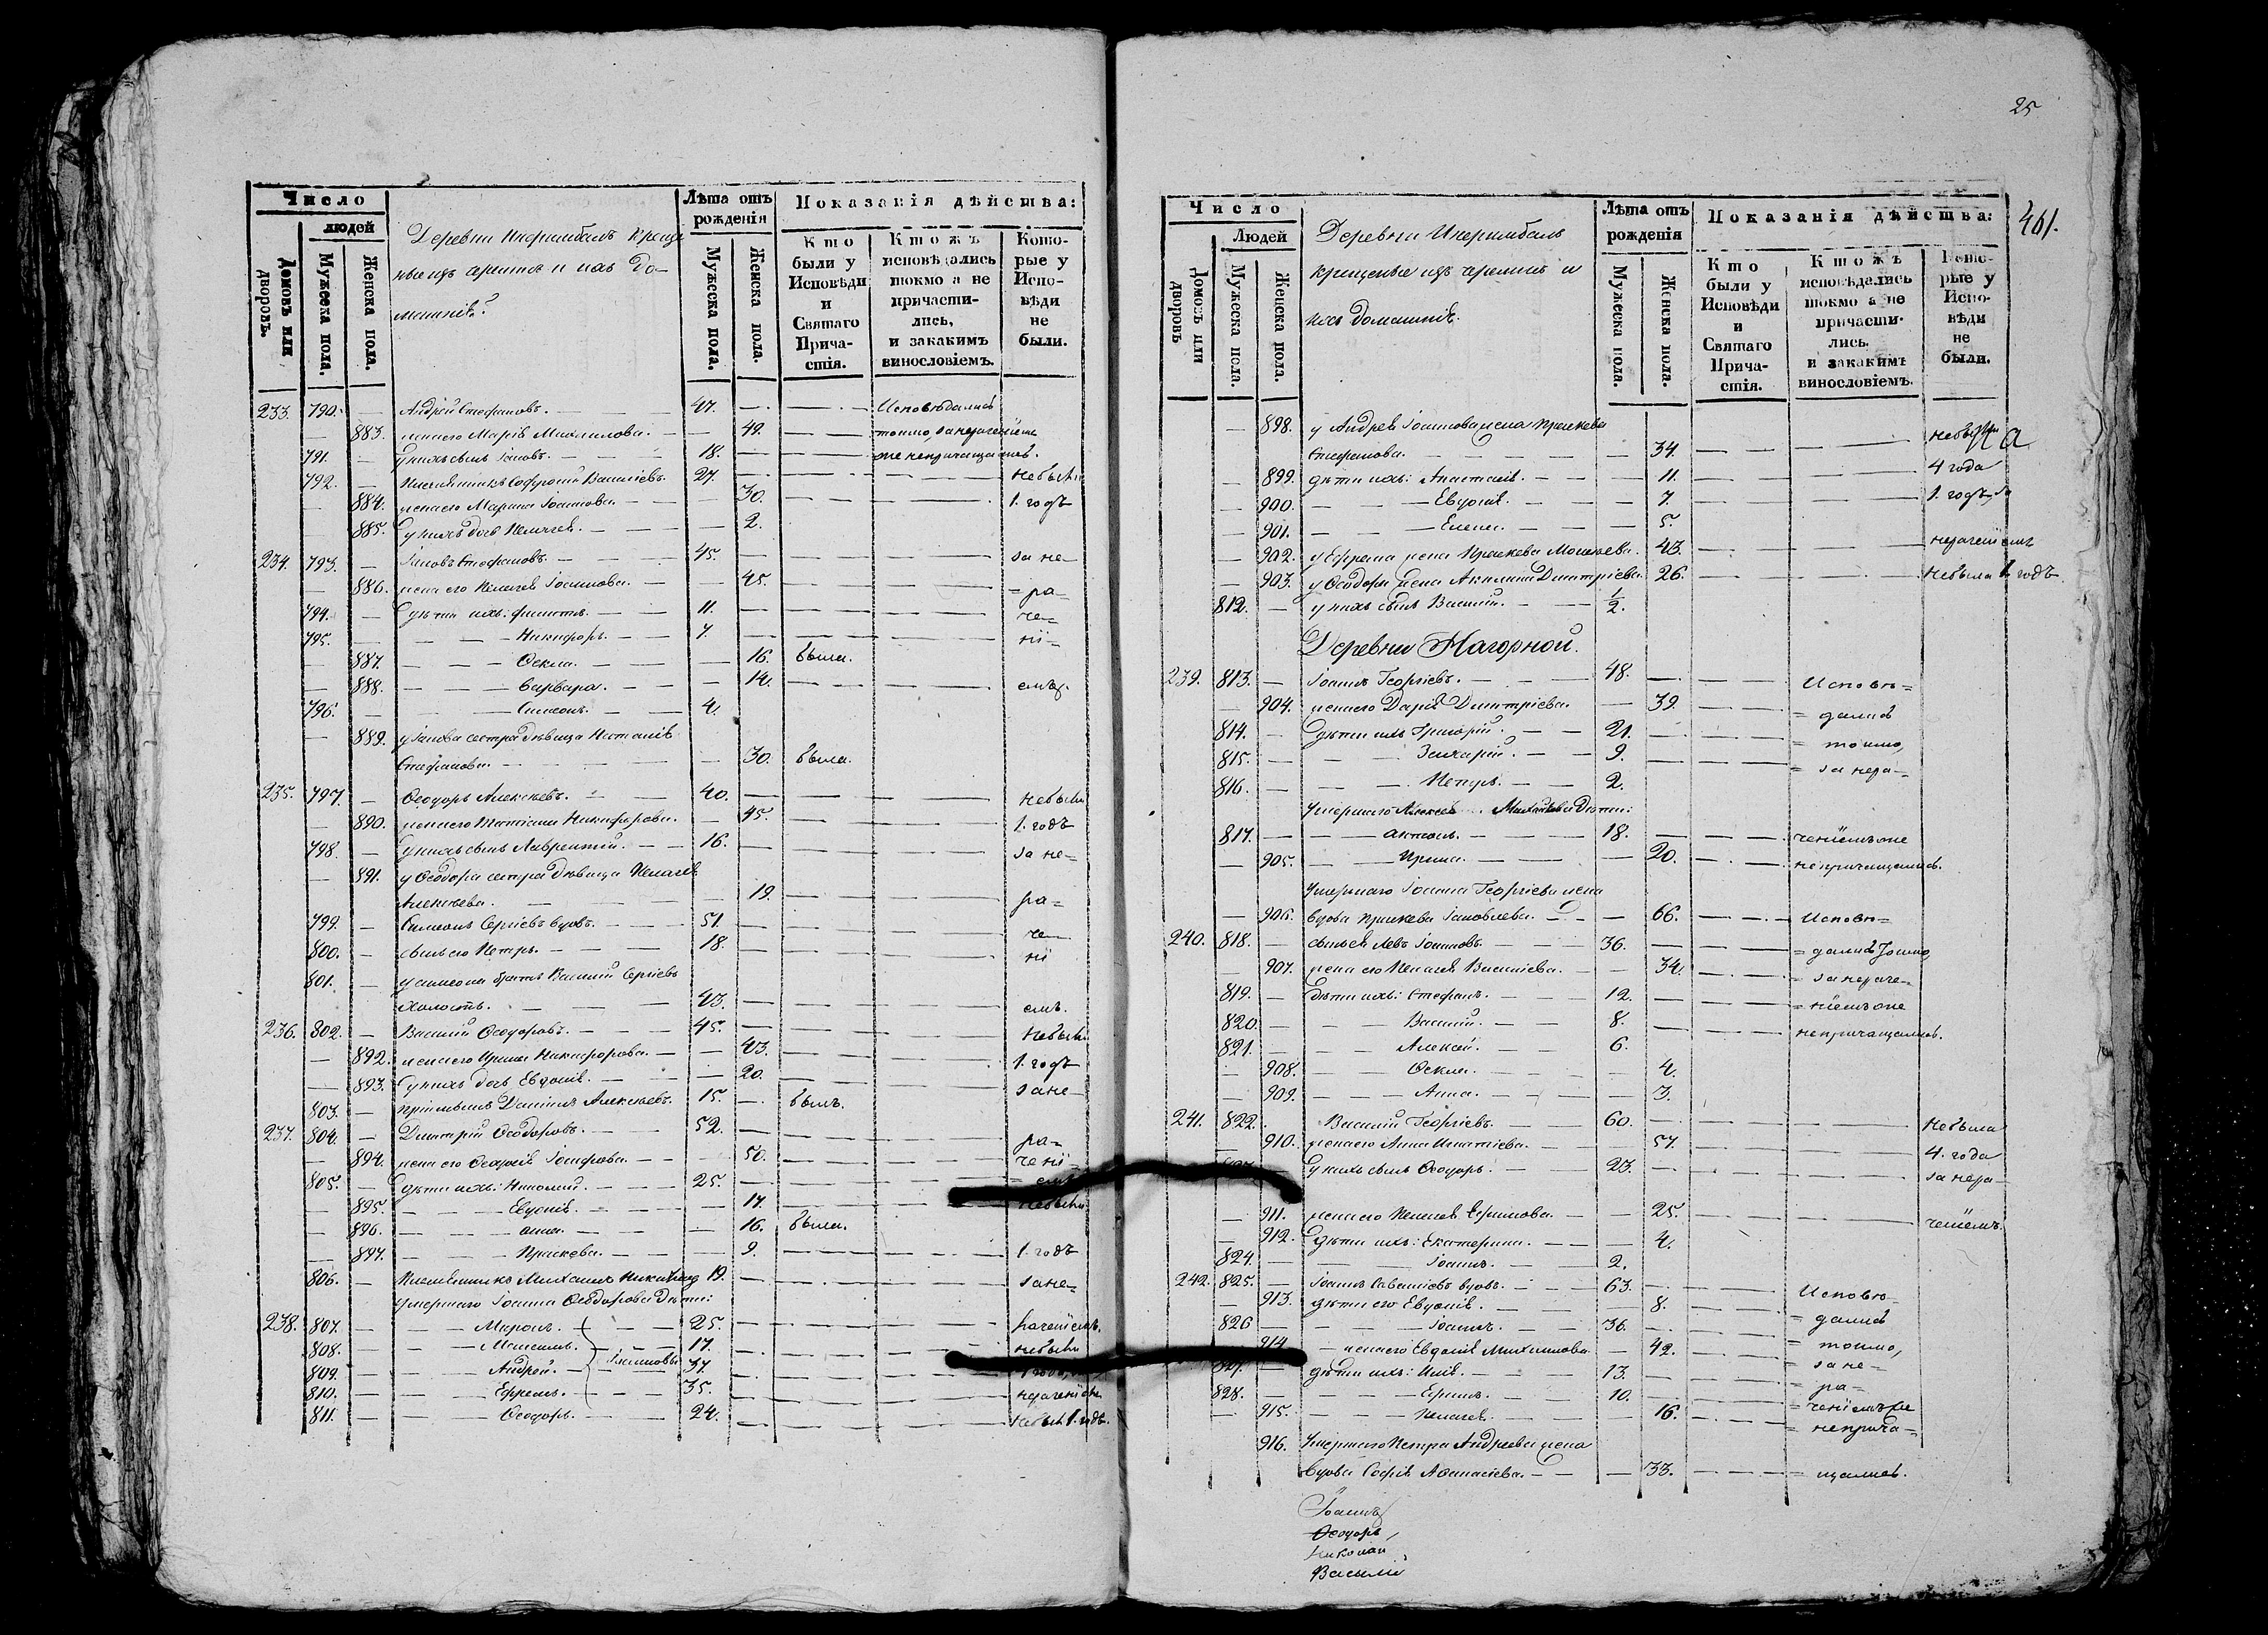 Число
людей
Домовъ или дворовъ.
Мужеска пола.
Женска пола.
Деревни Инеримбалъ креще
ные изъ черемисъ и ихъ до-
машніе.
Лѣта отъ рожденія
Мужеска пола.
Женска пола.
Показанія дѣйства:
Кто были у Исповѣди и Святаго Прича-стія.
Ктожъ исповѣдались токмо а не причасти-лись, и закакимъ винословіемъ.
Кото-рые у Испо-вѣди не были.
233. 790. — Андрей Стефановъ. — 47. — Исповѣдались
— 883. жена его Марія Михаилова. — 49. — токмо, занераченіем
791. — у нихъ сынъ Іаковъ. — 18. — же непричащались.
792. — Племянникъ Софроній Василіевъ. 27. — небыли
— 884. жена его Марина Іоаннова. — 30. — 1. годъ
— 885. у нихъ дочь Пелагея. — 2.
234. 793. — Іаковъ Стефановъ. — 45. — за не-
— 886. жена его Пелагея Іоаннова. — 45. — ра-
794. — дѣти ихъ: Филиппъ. — 11. — че-
795. — Никифоръ. — 7. — ні-
— 887. — Ѳекла. — 16. была.
— 888. — Варвара. — 14. — емъ.
796. — Симеонъ. — 4.
— 889. у Іакова сестра дѣвица Наталія
Стефанова. — 30. была.
235. 797. — Ѳеодоръ Алексѣевъ. — 40. — небыли
— 890. жена его Татіана Никифорова. — 45. — 1. годъ
798. — у нихъ сынъ Лаврентій. — 16. — за не-
— 891. у Ѳеодора сестра дѣвица Пелагея
Алексѣева. — 19. — ра-
799. — Симеонъ Сергіевъ вдовъ. — 51. — че-
800. — сынъ его Петръ. — 18. — ні
801. — у Симеона братъ Василій Сергіевъ
холостъ. — 43. — емъ.
236. 802. — Василій Ѳеодоровъ. — 45. — небыли
— 892. жена его Ирина Никифорова. — 43. — 1. годъ
— 893. у нихъ дочь Евдокія. — 20. — зане-
803. — пріемышъ Даніилъ Алексѣевъ. 15. — былъ.
237. 804. — Димитрій Ѳеодоровъ. — 52. — ра-
— 894. жена его Ѳеодосія Іосифова. — 50. — чені-
805. — дѣти ихъ: Николай. — 25. — емъ
— 895. — Евдокія. — 17. — небыли
— 896. — Анна. — 16. была.
— 897. — Праскева. — 9. — 1 годъ
806. — Племянникъ Михаилъ 19. — зане-
Умершаго Іоанна Ѳеодорова дѣти:
238. 807. — Миронъ. — 25. — раченіемъ.
808. — Іоанновы 17. — небыли
809. — Андрей. — 37.
810. — Ефремъ. — 35. — нераченіем
811. — Ѳеодоръ. — 24. — небылъ 1. годъ.
25
461.
Число
Людей
Домовъ или дворовъ
Мужеска пола.
Женска пола.
Деревни Инеримбалъ
крещеные изъ черемисъ и
ихъ домашніе.
Лѣта отъ рожденія
Мужеска пола.
Женска пола.
Показанія дѣйства:
Кто были у Исповѣди и Святаго Прича-стія.
Ктожъ исповѣдались токмо а не причасти-лись, и закакимъ винословіемъ.
Кото-рые у Испо-вѣди не были.
— 898. у Андрея Іоаннова жена Праскева
Стефанова. — 34. — небыла
— 899. дѣти ихъ: Анастасія. — 11. — 4 года
— 900. — Евдокія. — 7. — 1. годъ, за
— 901. — Елена. — 5.
— 902. у Ефрема жена Праскева Моисеева. 43. — нераченіемъ
— 903. у Ѳеодора жена Акилина Димитріева. 26. — небыла 1. годъ
812. — у нихъ сынъ Василій. — 1/2.
Деревни Нагорной.
239. 813. — Іоаннъ Георгіевъ. — 48. — Исповѣ=
— 904. жена его Дарія Димитріева. — 39. — = дались
814. — дѣти ихъ Григорій. — 21. — = токмо,
815. — Захарій. — 9. — = за нера=
816. — Петръ. — 2.
Умершаго Алексѣя дѣти:
817. — Антонъ. — 18. — ченіемъ же
— 905. — Ирина. — 20. — непричащались.
Умершаго Іоанна Георгіева жена
— 906. вдова Праскева Іаковлева. — 66. — Исповѣ=
240. 818. — сынъ ея Левъ Іоанновъ. — 36. — = дались токмо,
— 907. жена его Пелагея Василіева. — 34. — = за нераче=
819. — дѣти ихъ: Стефанъ. — 12. — = ніемъ же
820. — Василій. — 8. — непричащались.
821. — Алексѣй. — 6.
— 908. — Ѳекла. — 4.
— 909. — Анна. — 3.
241. 822. Василій Георгіевъ. — 60. — небыли
910. жена его Анна Игнатіева. — 57. — 4. года
— у нихъ сынъ Ѳеодоръ. — 23. — за нера-
— 911. жена его Пелагея Ефимова. — 25. — ченіемъ.
— 912. дѣти ихъ: Екатерина. — 4.
824. — Іоаннъ. — 2.
242. 825. — Іоаннъ Савватіевъ вдовъ. — 63. — Исповѣ-
— 913. дѣти его Евдокія. — 8. — = дались
826 — Іоаннъ. — 36.
914 — жена его Евдокія Михаилова. — 42. — = токмо,
827. — дѣти ихъ: Илія. — 13. — = за не=
828. — Ефимъ. — 10. — = ра=
— 915. — Пелагея. — 16. — = ченіемъ же
916. Умершаго Петра Андреева жена = неприча=
вдова Софія Аѳанасіева. — 33. — = щались.
Іоаннъ
Ѳеодоръ
Николай
Василій